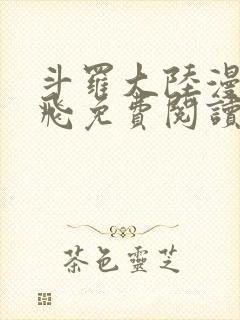 斗羅大陸漫
飛免費閱讀
茶色靈芝